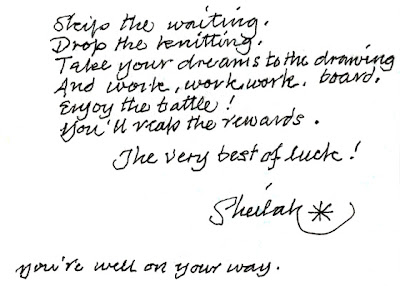 Skip the waiting.
Drop the knitting.
Take your dreams to the drawing
And work, work, work. board.
Enjoy the battle!
You'll reap the rewards.
The very best of luck!
Sheilah *
You're well on your way.